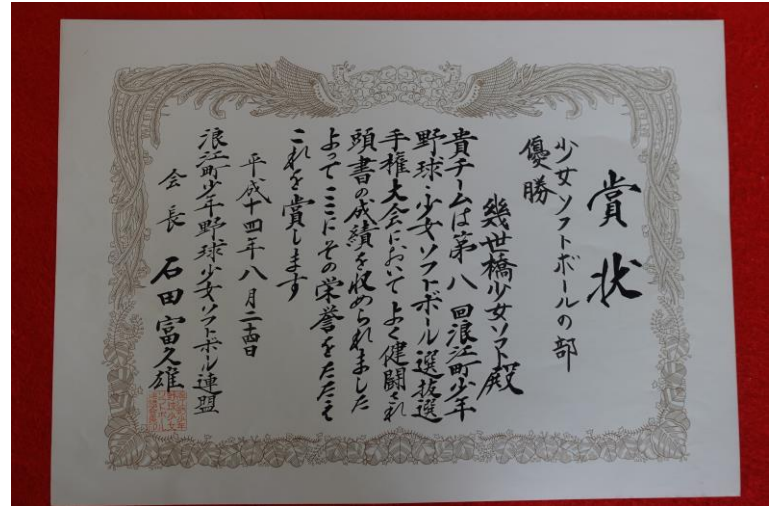 賞状
少女ソフトボールの部
優勝
幾世橋少女ソフト殿
貴チームは第八回浪江町少年
野球・少女ソフトボール選抜選
手権大会においてよく健闘され
頭書の成績を収められました
よってここにその栄誉をたたえ
これを賞します
平成十四年八月二十四日
浪江町少年野球少女ソフトボール連盟
会長 石田富久雄